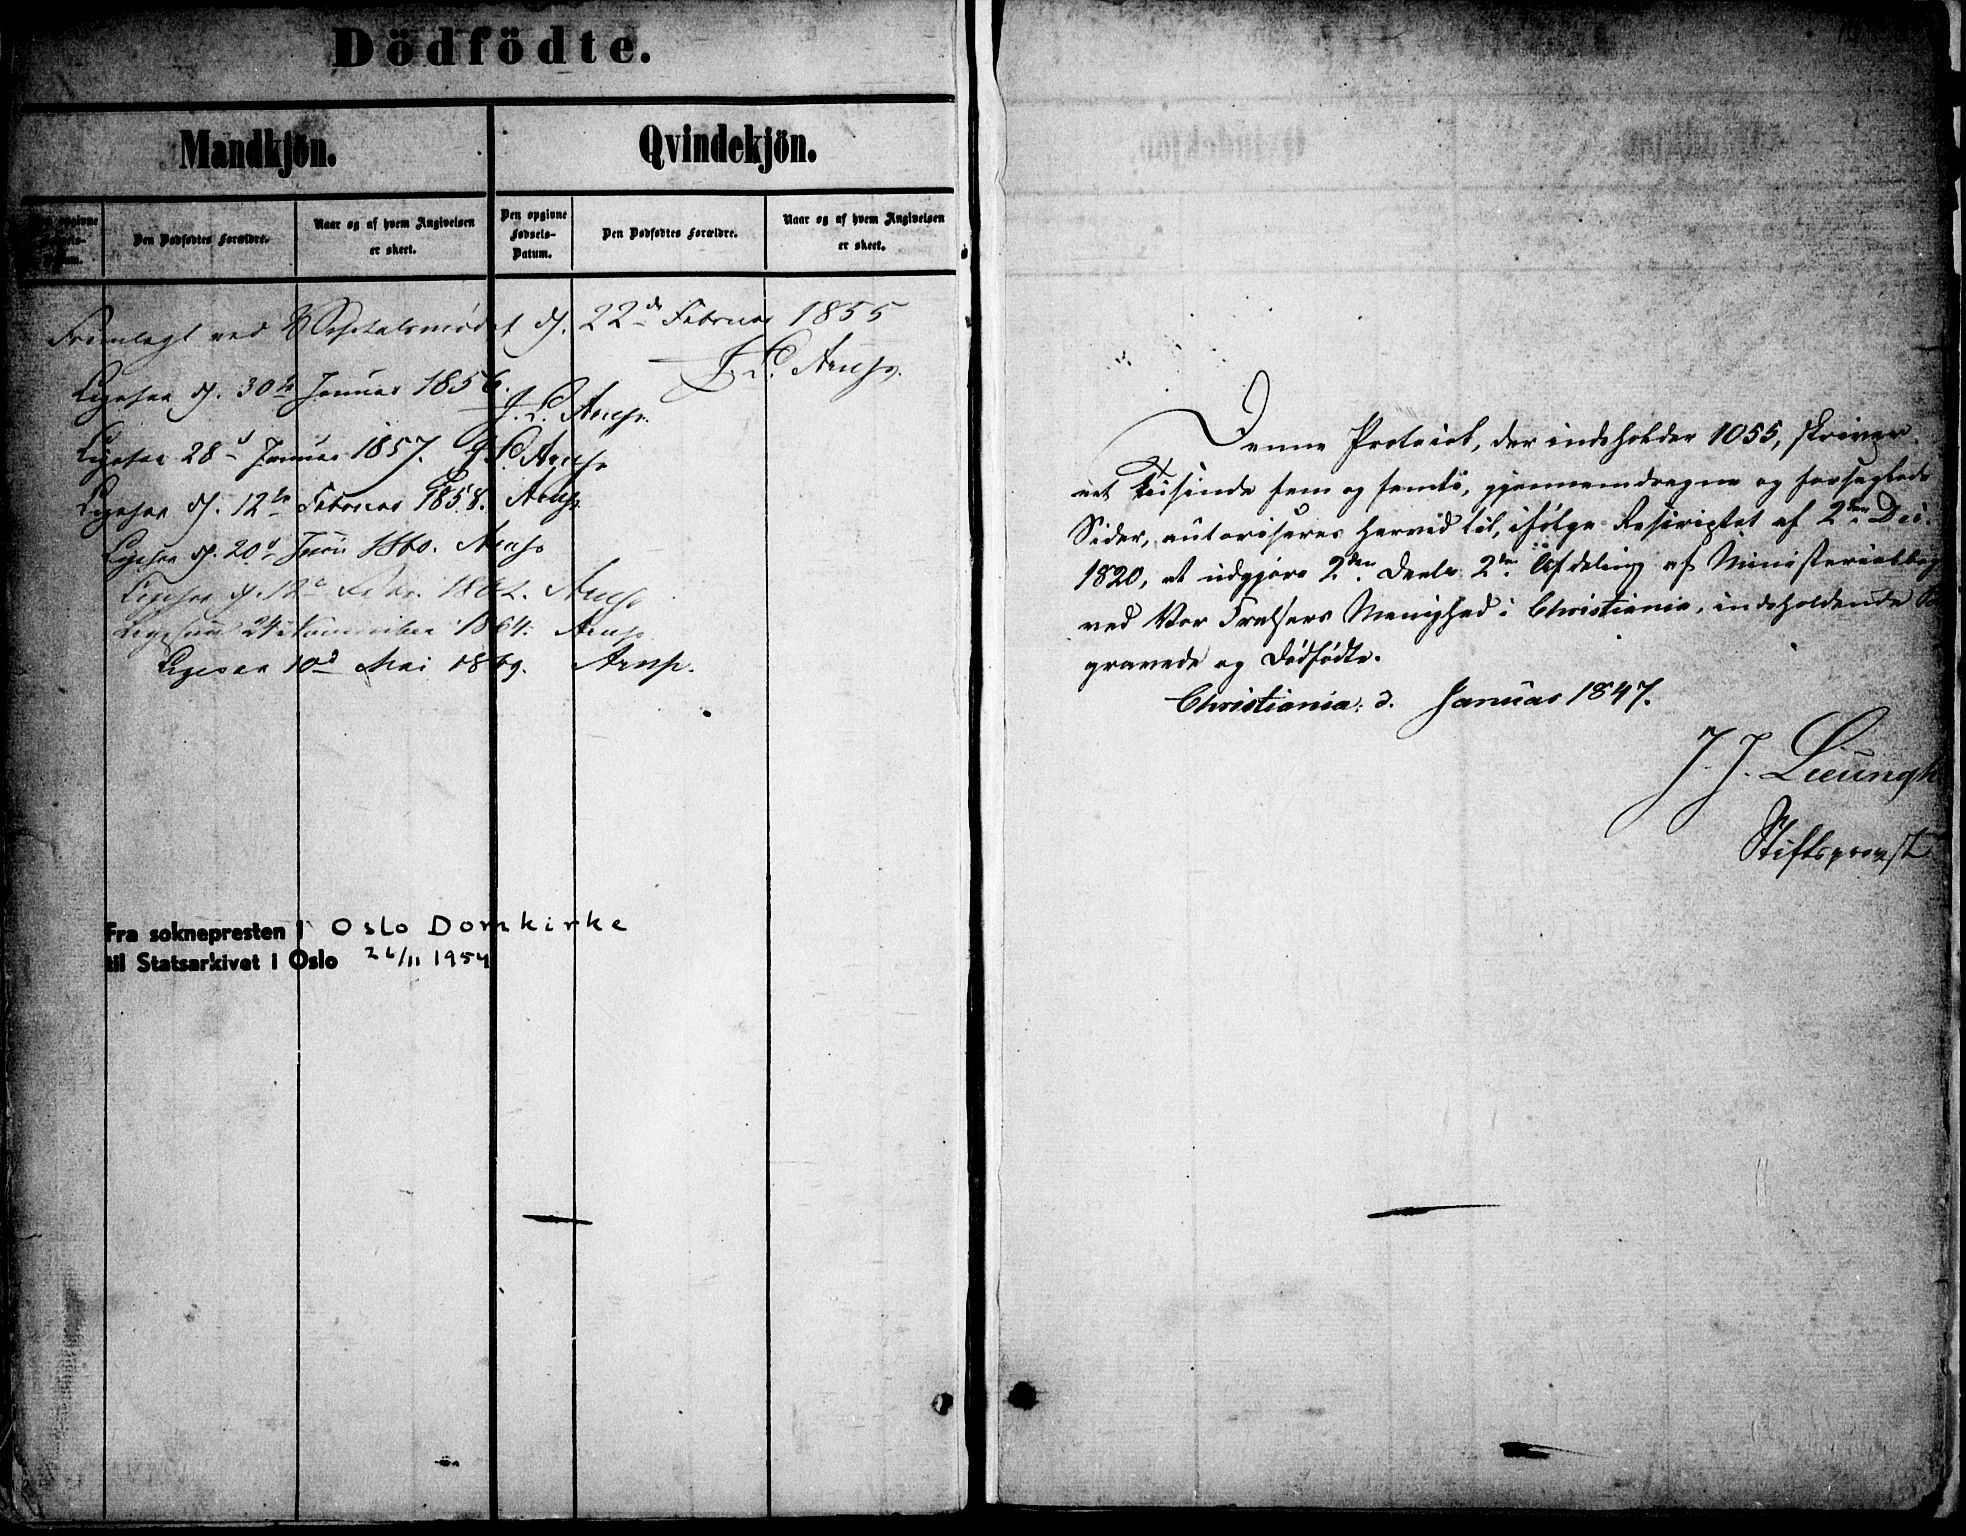 Dödfödte.
Mandkjön.
Qvindekjön.
Den opgivne Fødsels-Datum.
Den Dødfødtes Forældre.
Naar og af hvem Angivelsen er skeet.
Den opgivne Fødsels-Datum.
Den Dødfødtes Forældre.
Naar og af hvem Angivelsen er skeet.
Fremlagt ved d. 22de Februar 1855
J. L. Arup.
Ligesaa d. 30te Januar 1856.
J. L. Arup.
Ligesaa 28d Januar 1857. J. L. Arup
Ligesaa d. 12te Februar 1858. Arup
Ligesaa d. 20d Juni 1860. Arup
Ligesaa d. 12te Febr. 1862. Arup
Ligesaa 24 November 1864. Arup.
Ligesaa 10d Mai 1869. Arup.
Fra soknepresten i Oslo Domkirke
til Statsarkivet i Oslo 26/11 1954
Denne Protocol, der indeholder 1055, skriver
et Tusinde fem og femti, gjennemdragne og forseglede
Sider, autoriseres herved til, ifølge Rescriptet af 2den Dec.
1820, at udgjøre 2den Deels 2den Afdeling af Ministerialbog
ved Vor Frelsers Menighed i Christiania, indeholdende Be
gravede og Dødfødte.
Christiania d. Januar 1847.
J. J.
Stiftsprovst